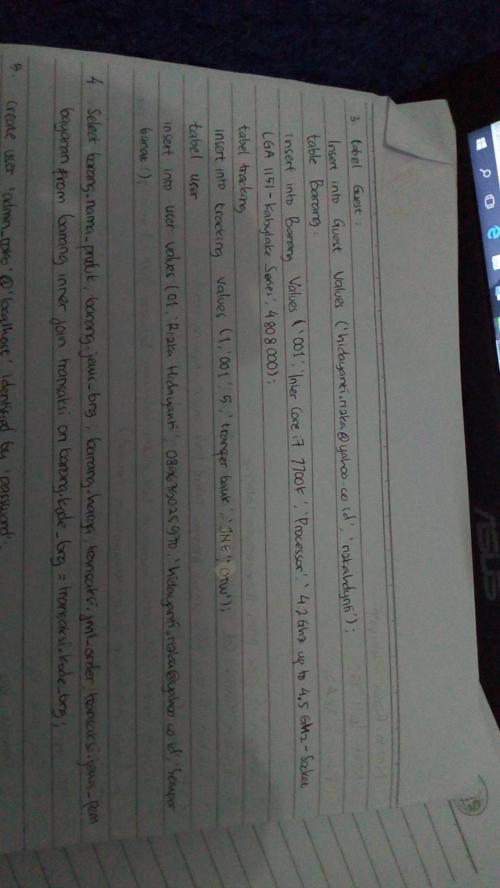 3. tabel Guest :
Insert into Guest Values ('hidayanti.rizka@yahoo.co.id', 'rizkahdynti');
table Barang :
Insert into Barang Values ('001', 'Inter Core i7 7700k', 'Processor', '4,2 Ghz up to 4.5 Ghz - Socket
LGA 1151 - Kabylake Series', 4808000);
tabel tracking
insert into tracking values (1, '001', 5, 'transfer bank', 'JNE', 'OTW');
tabel user
insert into user values (01, 'Rizka Hidayanti', 'hidayanti.rizka@yahoo.co.id', 'Semper
barat');
4. Select barang.nama_produk, barang.jenis_brg, barang.harga, transaksi.jml_order, transaksi.jenis_pem
bayaran from barang inner join transaksi on barang.kode_brg = transaksi.kode_brg;
5. create user 'admin_toko'@'localhost' identified by 'password';
ASUS